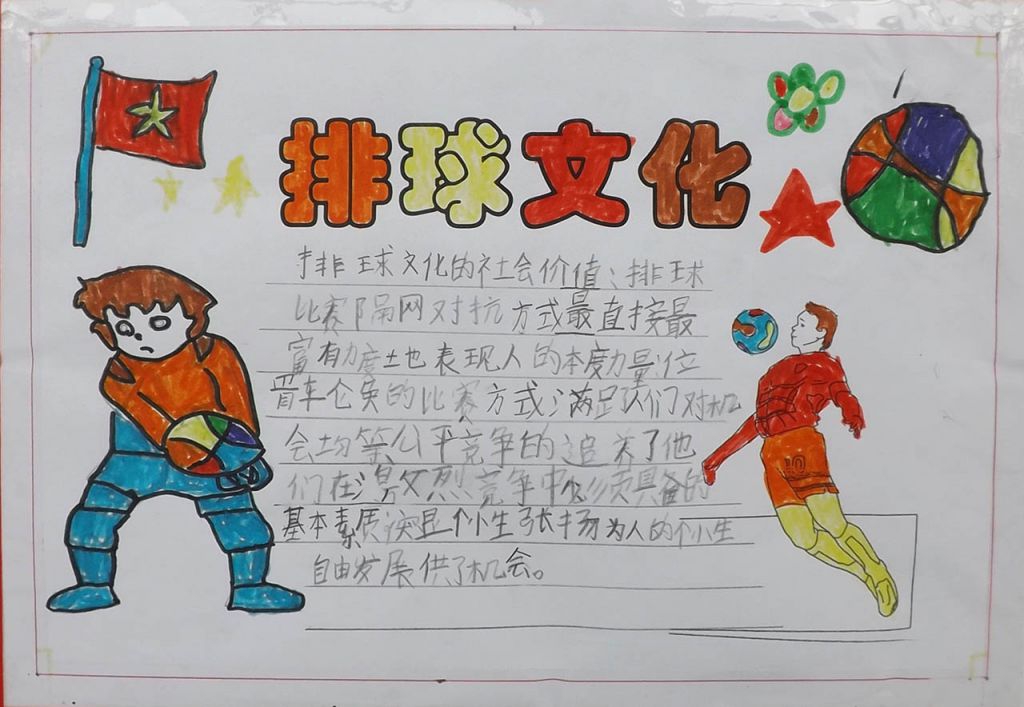 排球文化
排球文化的社会价值：排球
比赛隔网对抗方式最直接最
富有力度土也表现人的本度力量位
置车仑奂的比赛方式满足队们对机
会土匀等公平竞争的追关了他
们在激烈竞争中必须具备的
基本素质突显个小生张扬为人的个小生
自由发展供了机会。
10